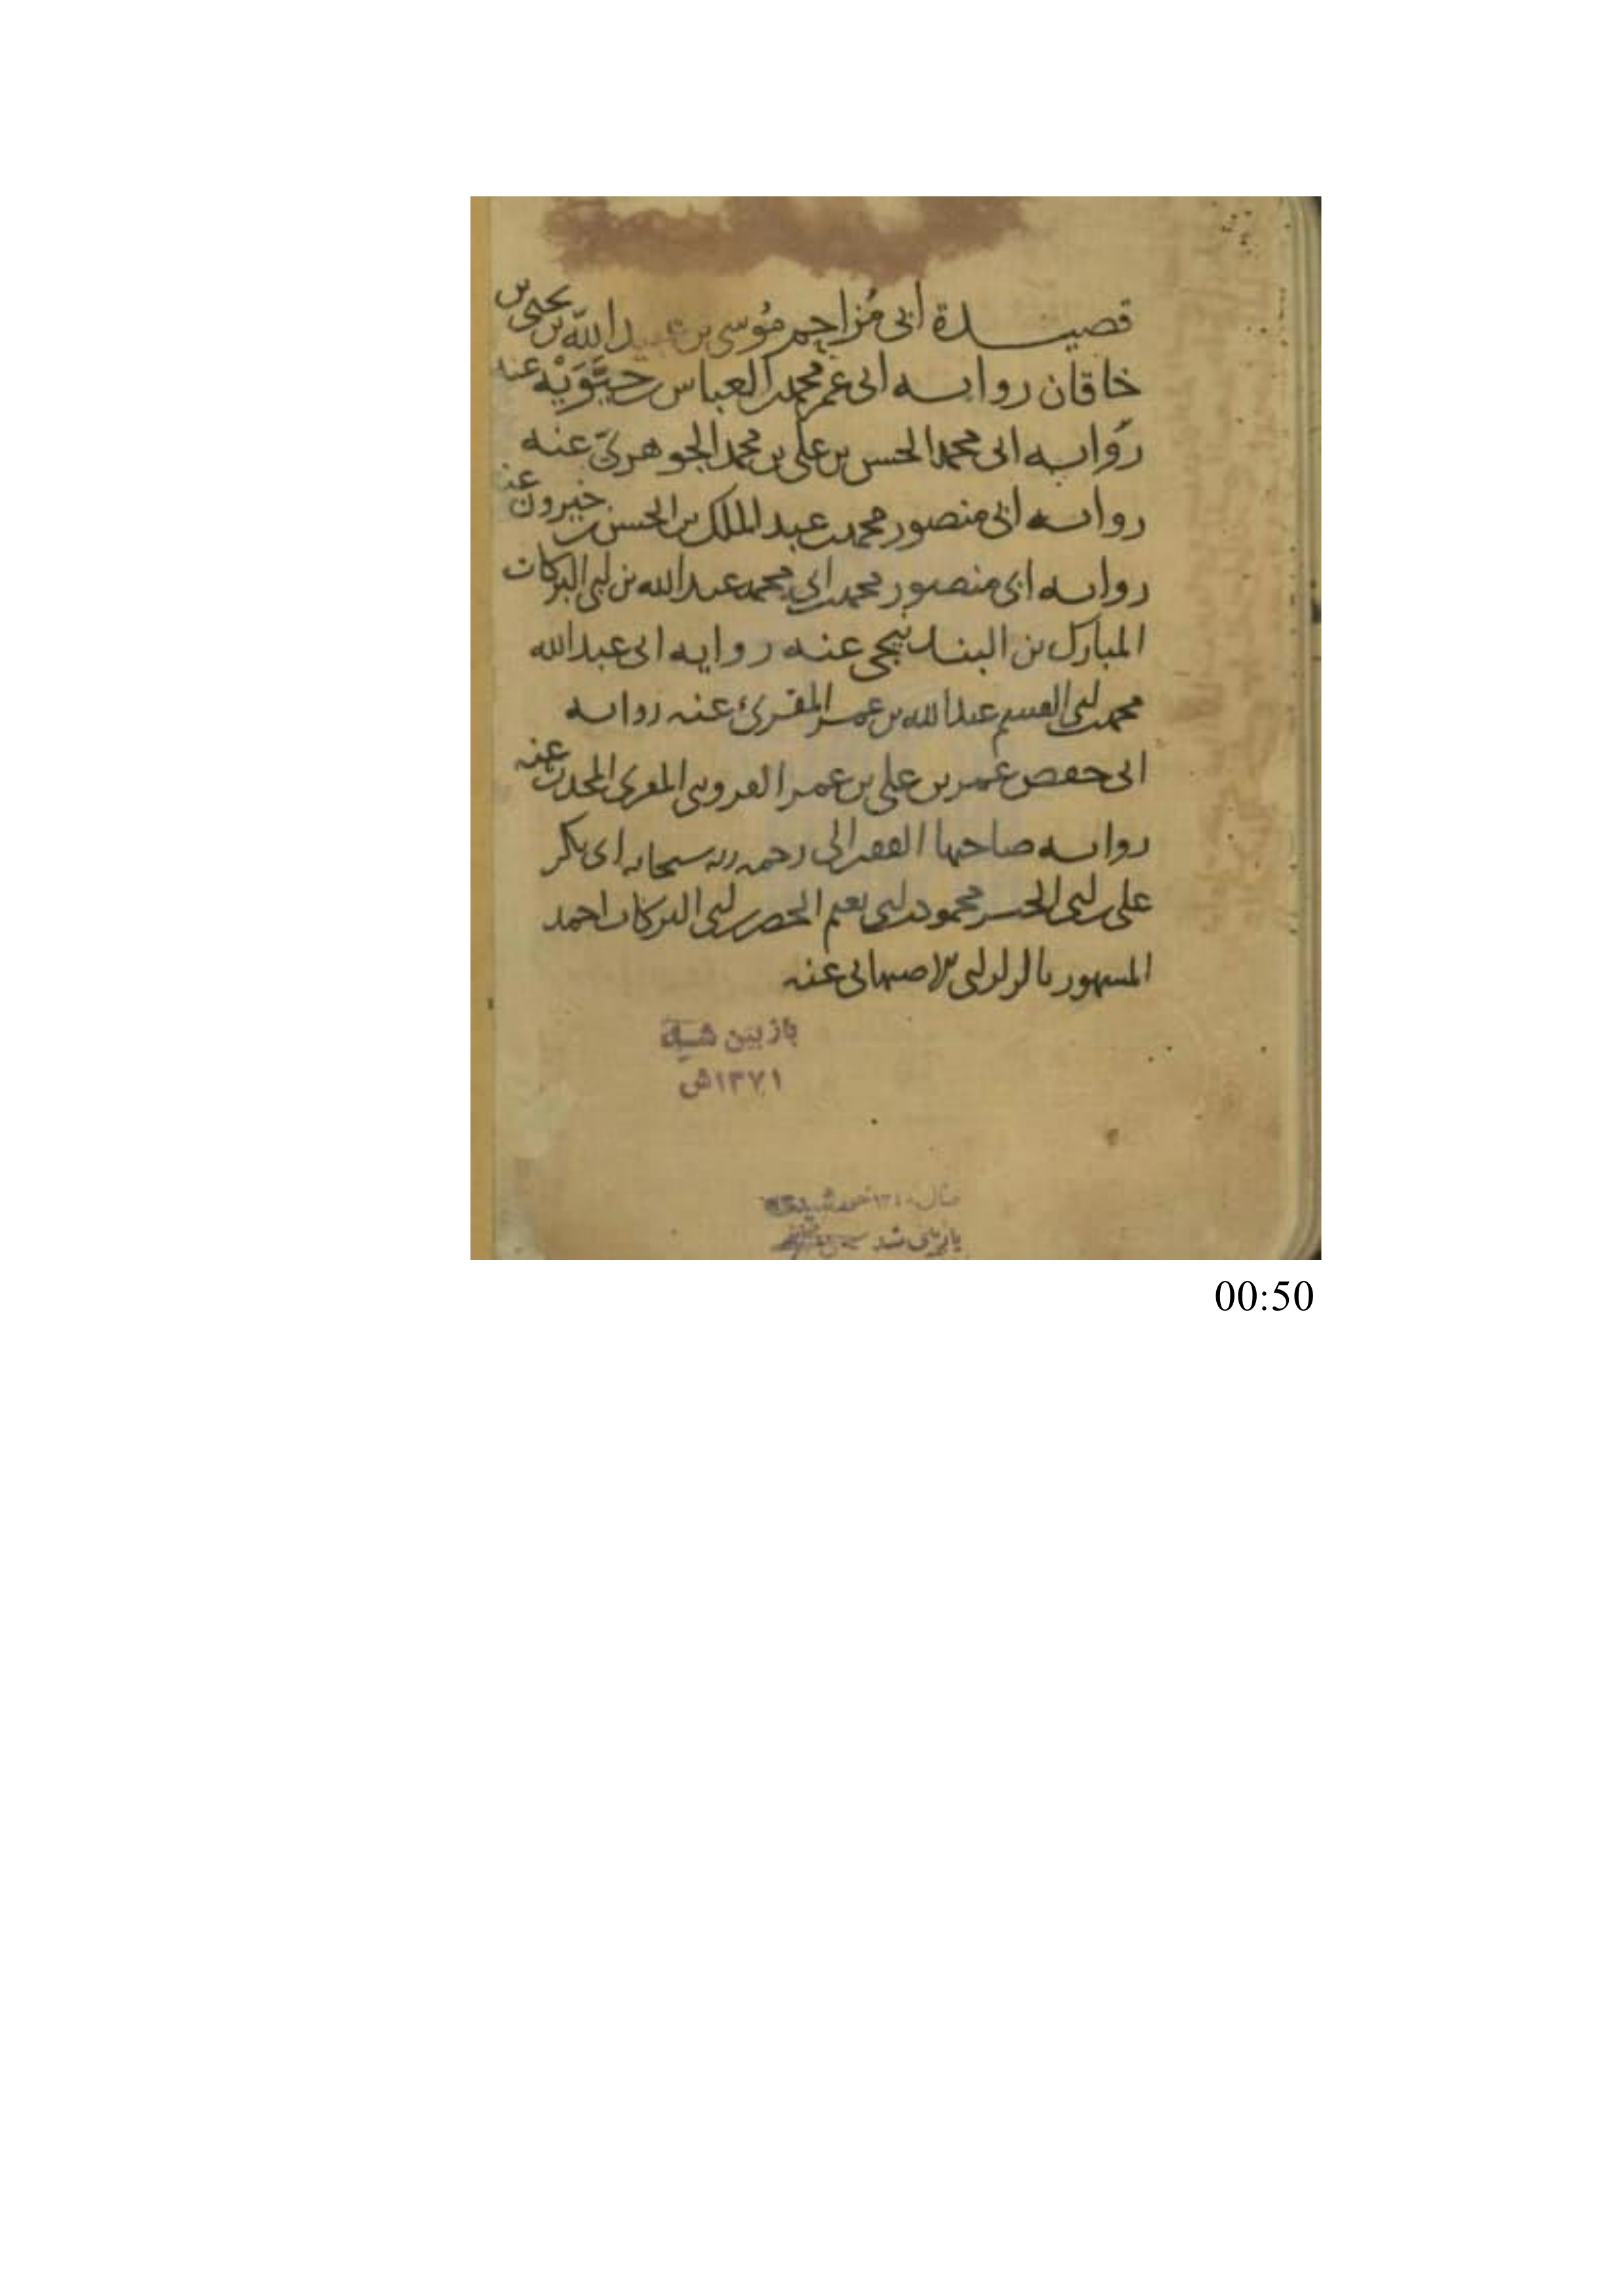 قصيدة أبي مُزاحم مُوسى بن عبيد الله بن يحيى بن
خاقان روايه ابى عمر محمد بن العباس بن حَيُّوَيْه عنه
روايه ابى محمد الحسن بن على بن محمد الجوهرىّ عنه
روايه ابى منصور محمد بن عبد الملك بن الحسن بن خيرون عنه
روايه ابى منصور محمد بن ابى محمد عبد الله بن ابى البركات
المبارك بن البندنيجى عنه روايه ابى عبد الله
محمد بن ابى القسم عبد الله بن عمر المقرئ عنه روايه
ابى حفص عمر بن على بن عمر القزوينى المقرى المحدث عنه
روايه صاحبها الفقير الى رحمه ربه سبحانه ابى بكر
على بن ابى محمود بن ابى نعيم بن ابى البركات احمد
المشهور الاصبهانى عنه
بازبین شد
۱۳۷۱ش
سال
بازبینی شد
00:50